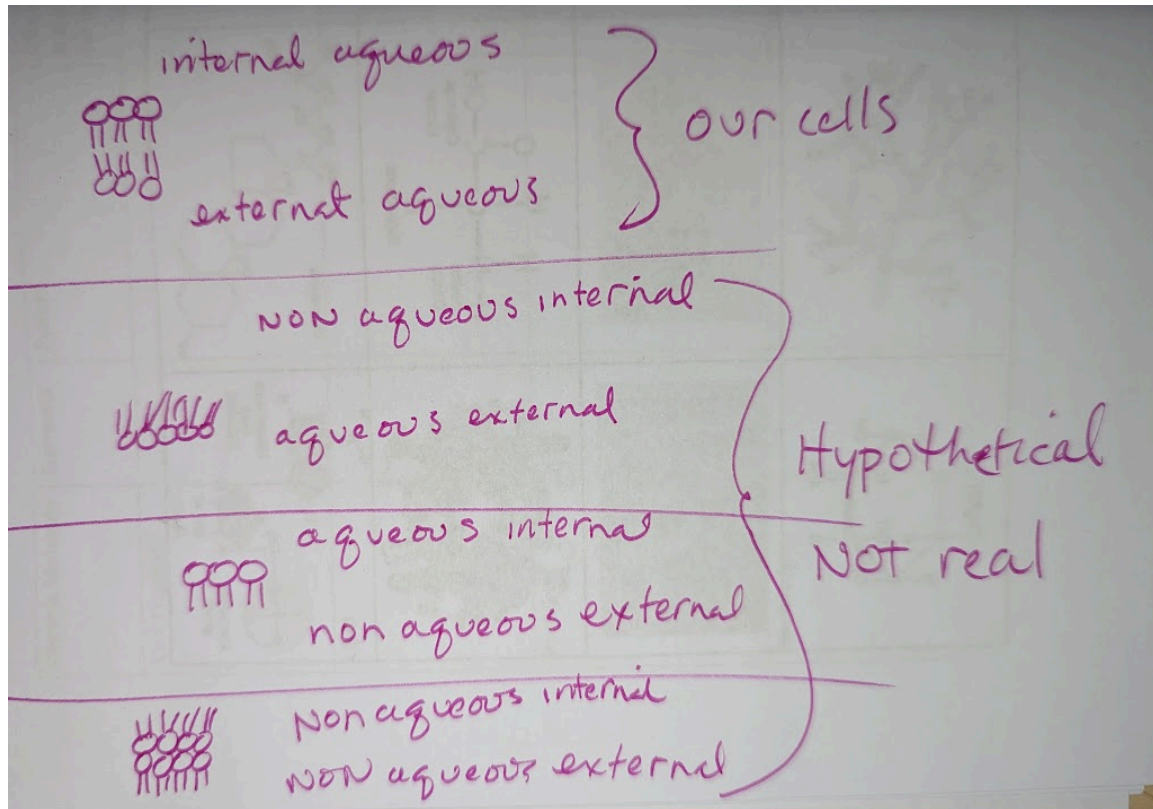 internal aqueous
our cells
external aqueous
NON aqueous internal
aqueous external
Hypothetical
Not real
aqueous internal
non aqueous external
Non aqueous internal
NON aqueous external